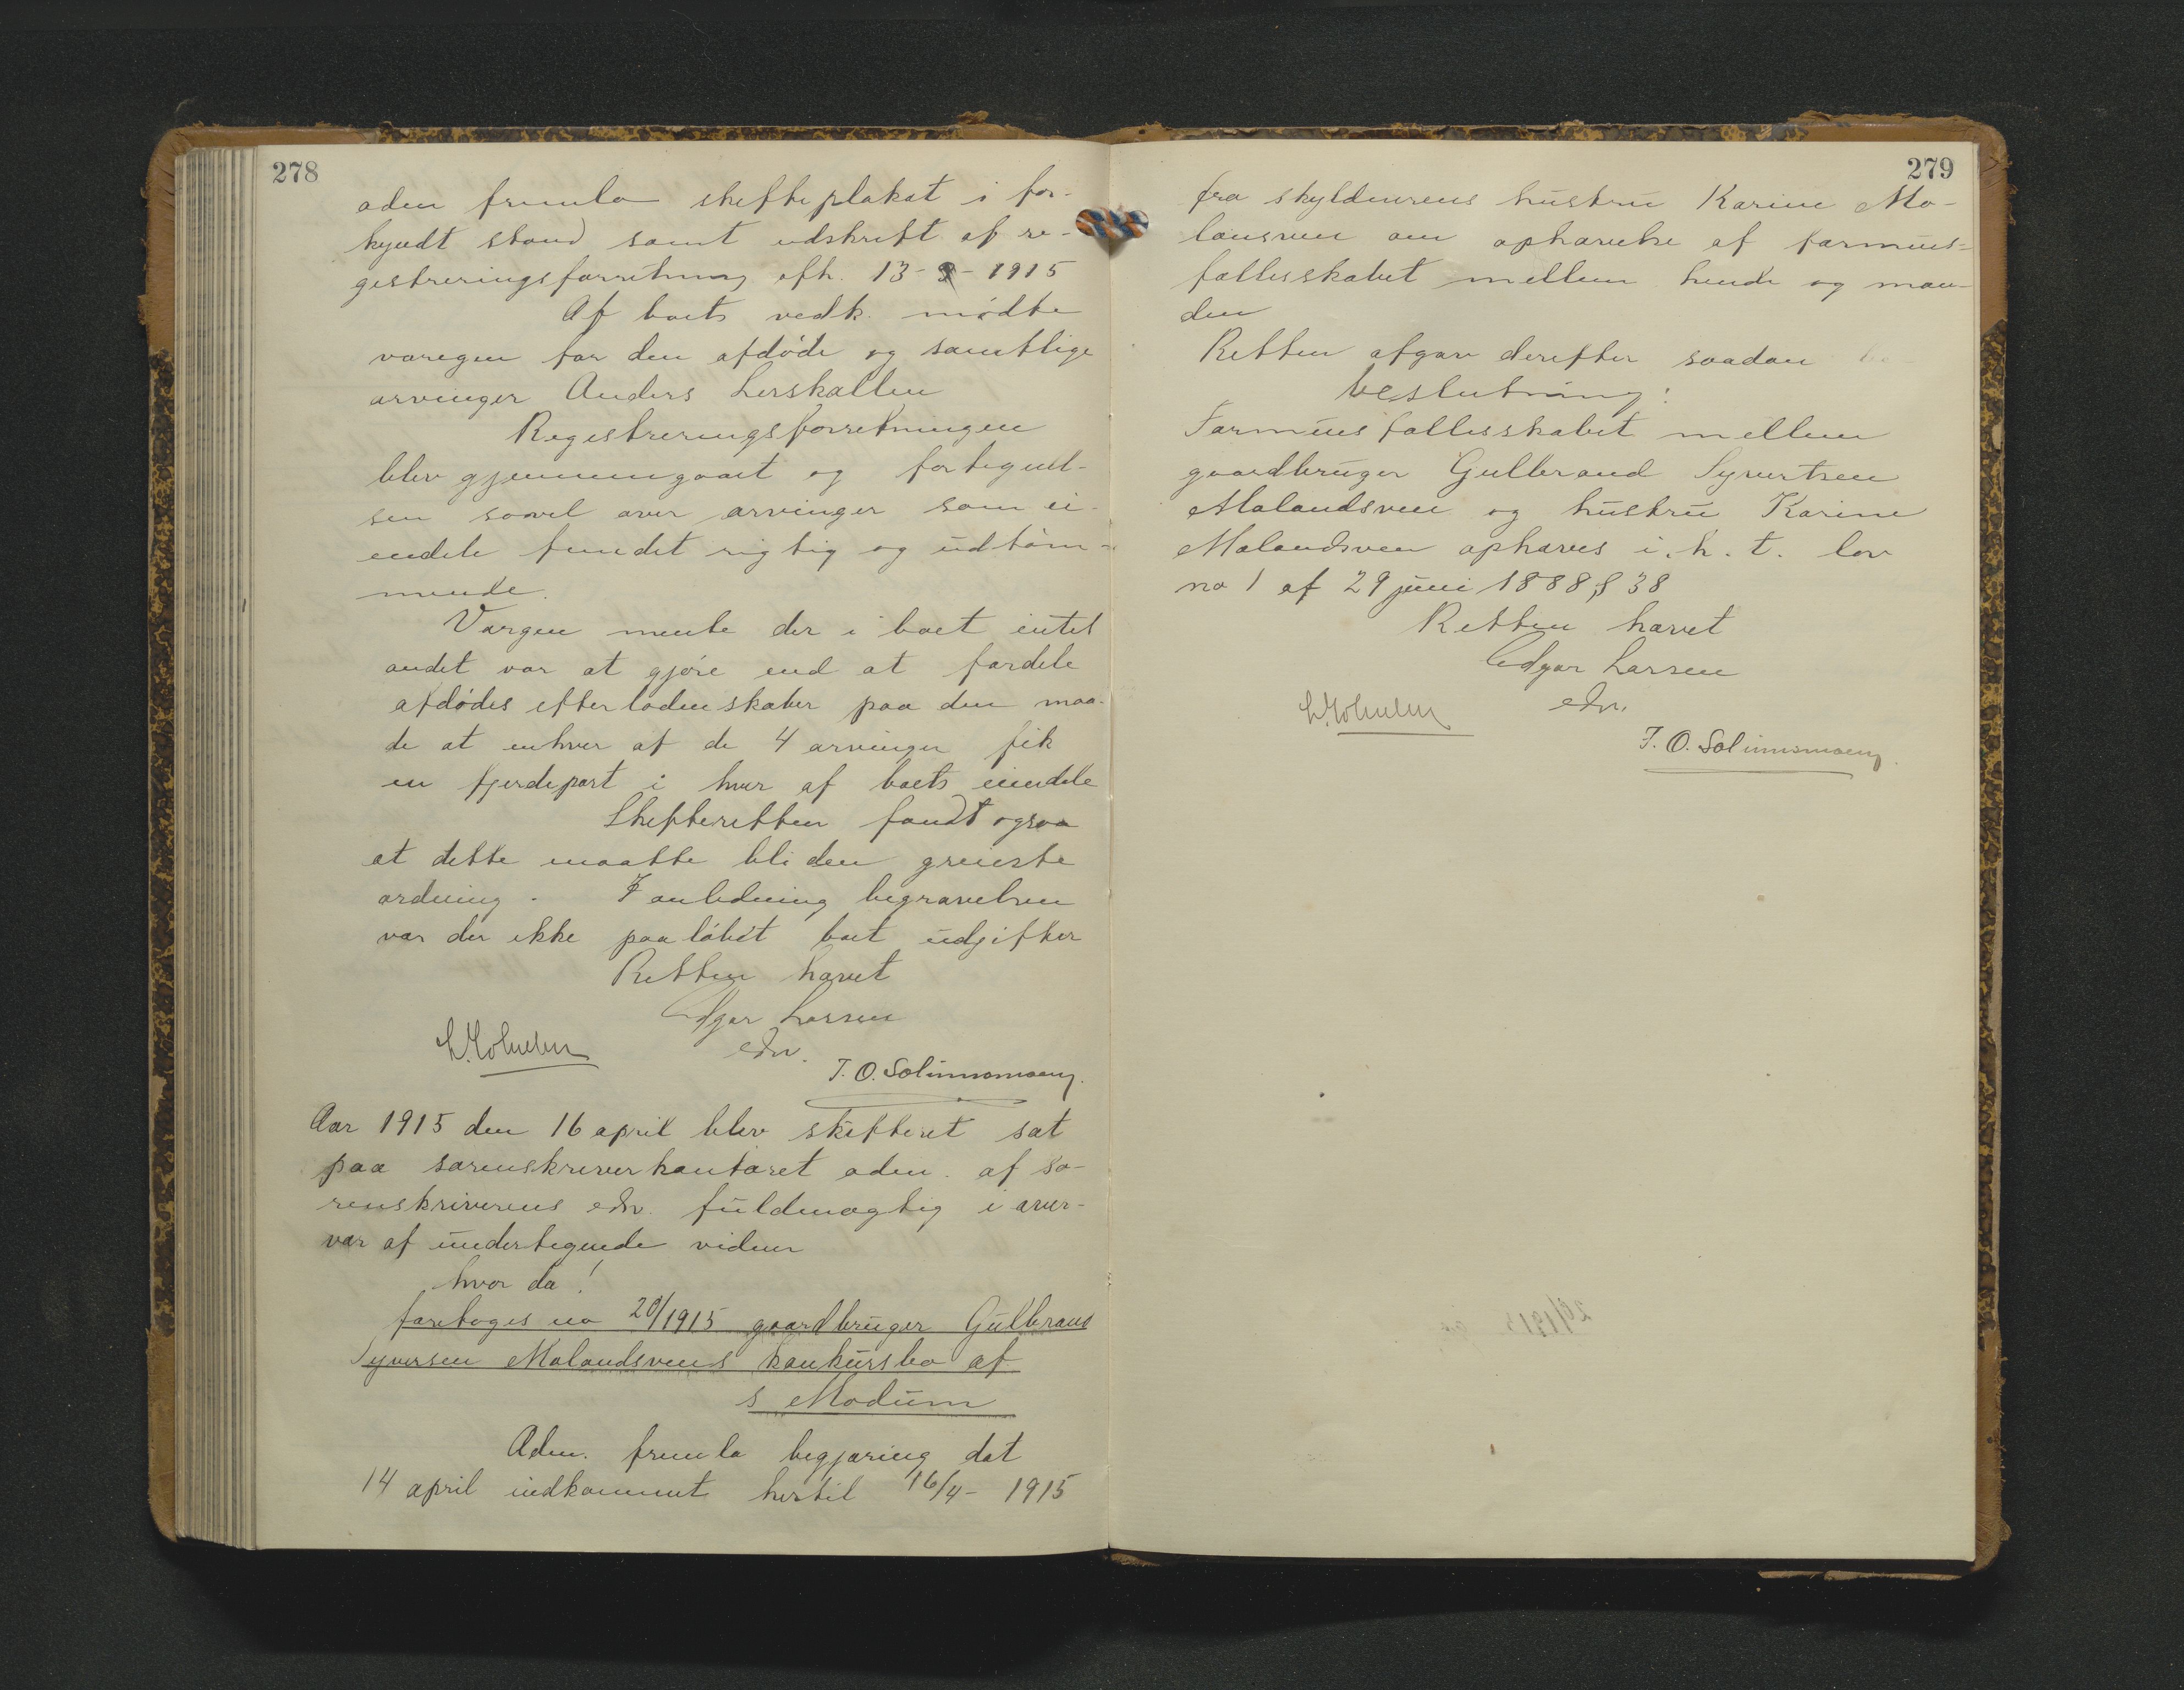 278
adm fremla skifteplakat i for-
kyndt stand samt udskrift af re-
gistreringsforretning afh. 13-3-1915
Af boets vedk. mødte
vaergen for den afdøde og samtlige
arvinger Anders Lerskallen
Registreringsforretningen
blev gjennemgaaet og fortegnel-
sen saavel over arvinger som ei-
endele fundet rigtig og udtøm-
mende.
Vergen mente der i boet intet
andet var at gjøre end at fordele
afdødes efterladenskaber paa den maa-
de at enhver af de 4 arvinger fik
en fjerdepart i hver af boets eiendele
Skifteretten fandt ogsaa
at dette maatte bli den greieste
ordning. I anledning begravelsen
var der ikke paaløbet boet udgifter
Retten hævet
Edgar Larsen
edsv.
J. O. Solumsmoen
Aar 1915 den 16 april blev skifteret sat
paa sorenskriverkontoret adm. af so-
renskriverens edsv. fuldmægtig i over-
vær af undertegnede vidner
hvor da!
foretoges no 20/1915 gaardbruger Gulbrand
Syversen Malandsveens konkursbo af
s Modum
Adm. fremla begjæring dat
14 april indkommet hertil 16/4- 1915
279
fra skyldnerens hustru Karine Ma-
lansveen om ophævelse af formues-
fællesskabet mellem hende og man-
den
Retten afgav derefter saadan
beslutning:
Formuesfællesskabet mellem
gaardbruger Gulbrand Syvertsen
Malandsveen og hustru Karine
Malandsveen ophæves i. h. t. lov
no 1 af 29 juni 1888 § 38
Retten hævet
Edgar Larsen
edsv.
J. O. Solumsmoen